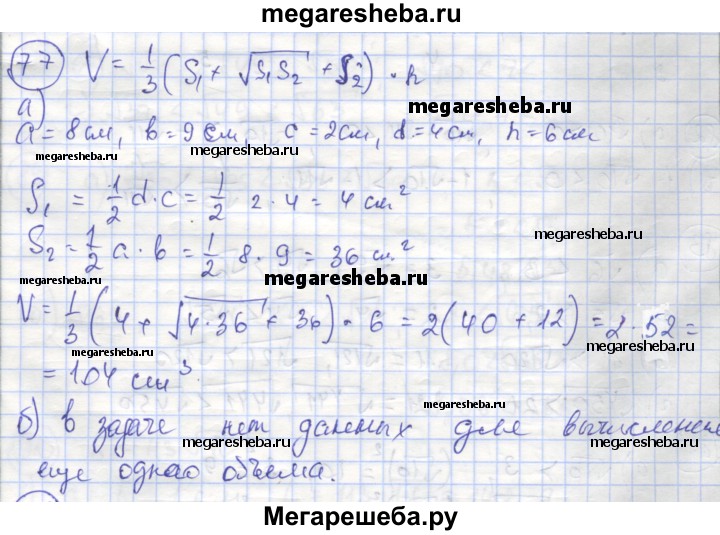 megaresheba.ru
77 V = 1/3 (S₁ + √S₁S₂ + S₂) · h
megaresheba.ru
а)
a = 8 см, b = 9 см, c = 2 см, d = 4 см, h = 6 см
megaresheba.ru megaresheba.ru
S₁ = 1/2 d · c = 1/2 2 · 4 = 4 см²
megaresheba.ru
S₂ = 1/2 a · b = 1/2 8 · 9 = 36 см²
megaresheba.ru megaresheba.ru
V = 1/3 (4 + √4·36 + 36) · 6 = 2(40 + 12) = 2·52 =
megaresheba.ru megaresheba.ru
= 104 см³.
megaresheba.ru
б) в задаче нет данных для вычисления
megaresheba.ru megaresheba.ru
еще одного объема.
Мегарешеба.ру